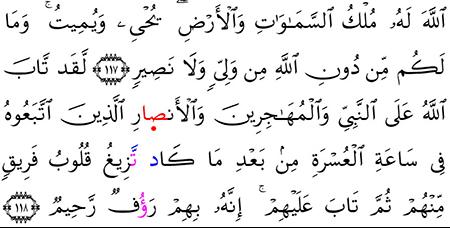 ٱللَّهَ لَهُۥ مُلْكُ ٱلسَّمَـٰوَٰتِ وَٱلْأَرْضِ ۖ يُحْىِۦ وَيُمِيتُ ۚ وَمَا
لَكُم مِّن دُونِ ٱللَّهِ مِن وَلِىٍّۢ وَلَا نَصِيرٍۢ ﴿١١٧﴾ لَّقَد تَّابَ
ٱللَّهُ عَلَى ٱلنَّبِىِّ وَٱلْمُهَـٰجِرِينَ وَٱلْأَنصَارِ ٱلَّذِينَ ٱتَّبَعُوهُ
فِى سَاعَةِ ٱلْعُسْرَةِ مِنۢ بَعْدِ مَا كَادَ تَزِيغُ قُلُوبُ فَرِيقٍۢ
مِّنْهُمْ ثُمَّ تَابَ عَلَيْهِمْ ۚ إِنَّهُۥ بِهِمْ رَؤُفٌۭ رَّحِيمٌۭ ﴿١١٨﴾